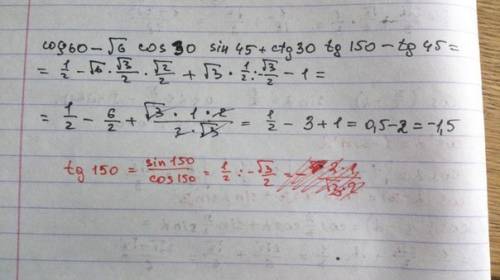 cos 60 − √6 cos 30 sin 45 + ctg 30 tg 150 − tg 45 =
= 1/2 − √6 · √3/2 · √2/2 + √3 · 1/2 : −√3/2 − 1 =
= 1/2 − 6/2 + √3 · 1 · 2/2 · √3 = 1/2 − 3 + 1 = 0,5 − 2 = −1,5
tg 150 = sin 150/cos 150 = 1/2 : −√3/2 =